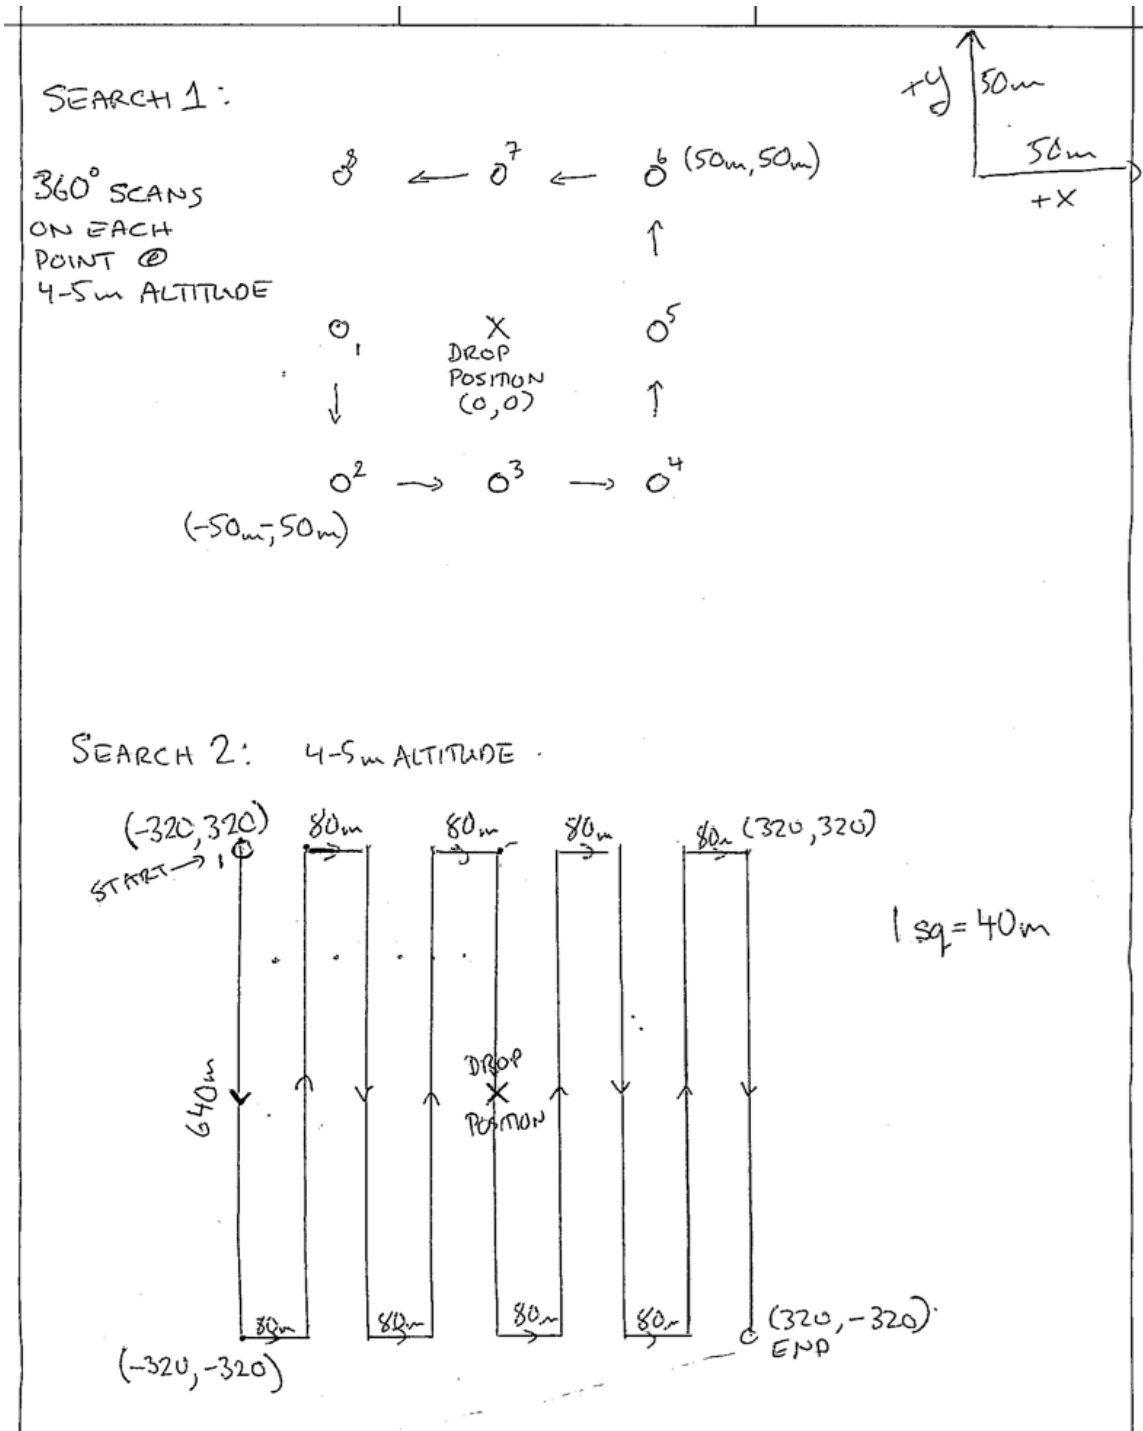 SEARCH 1:
+y
50m
50m
+X
8
7
6
(50m, 50m)
360° SCANS
ON EACH
POINT @
4-5m ALTITUDE
1
X
5
DROP
POSITION
(0,0)
2
3
4
(-50m,-50m)
SEARCH 2: 4-5m ALTITUDE
(-320,320)
80m
80m
80m
80m
(320,320)
START
1
1 sq = 40m
640m
DROP
X
POSITION
80m
80m
80m
80m
(320,-320)
END
(-320,-320)